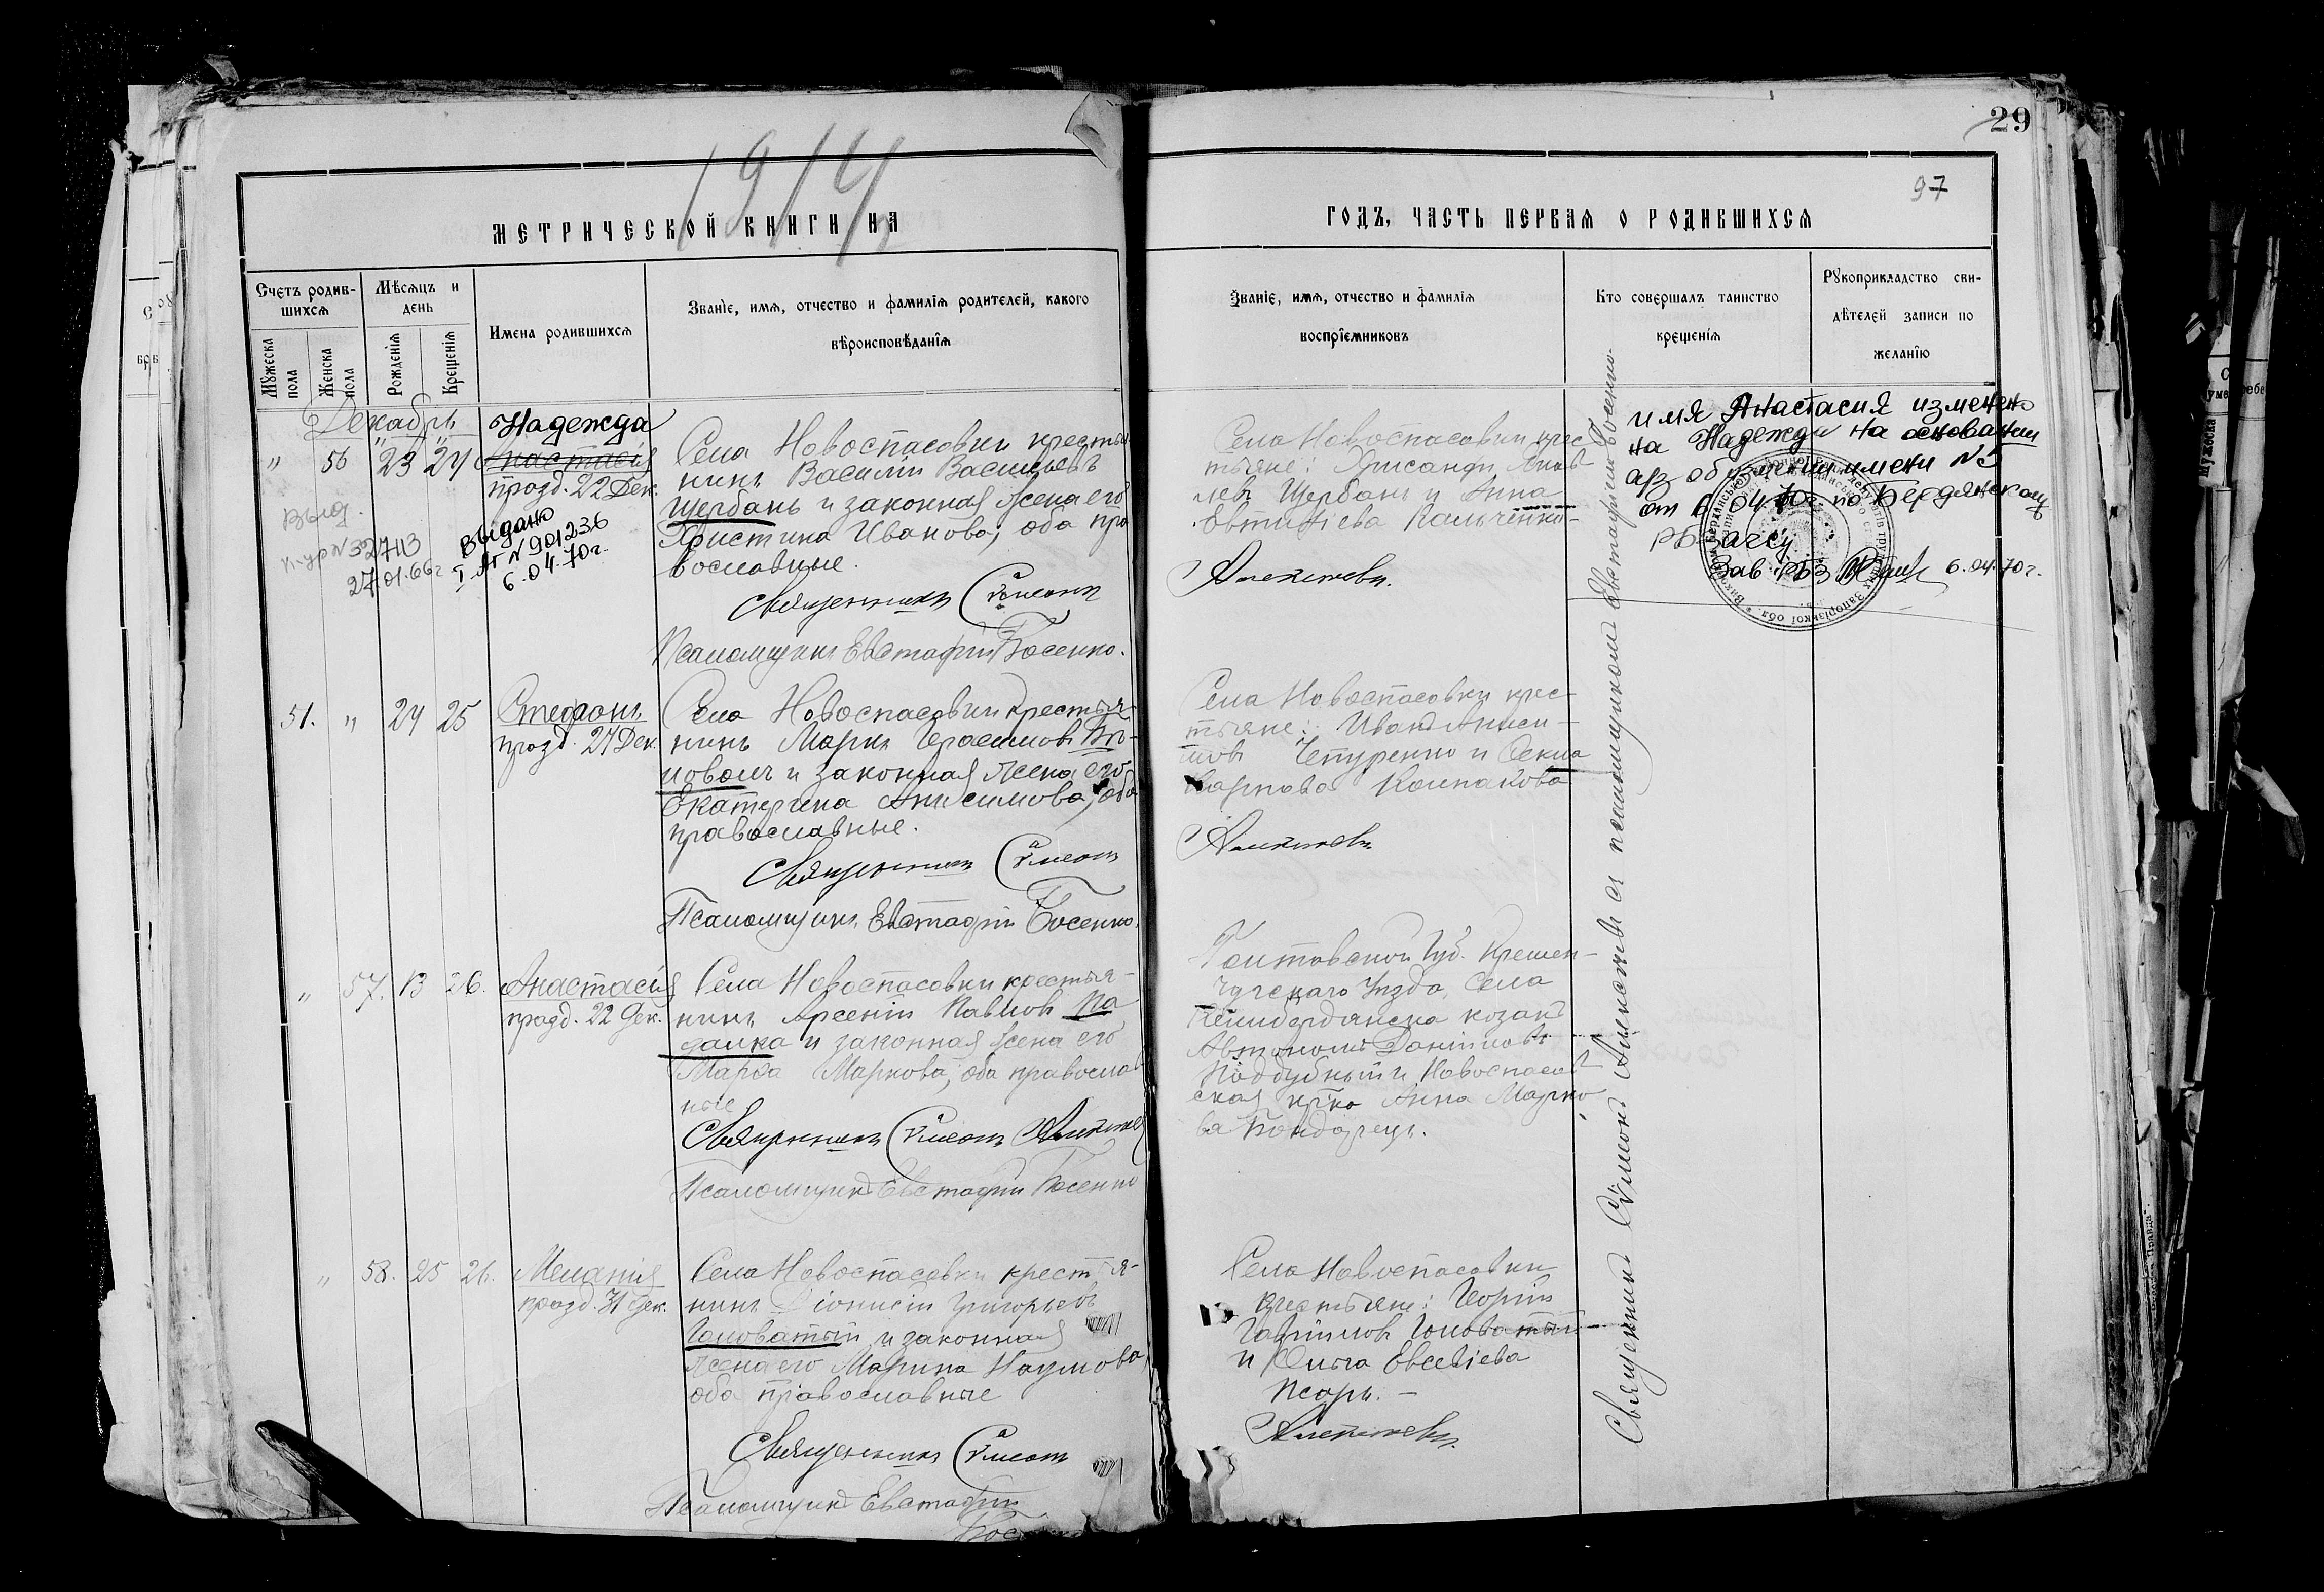 1914
29
97
МЕТРИЧЕСКОЙ КНИГИ НА
ГОДЪ, ЧАСТЬ ПЕРВАЯ О РОДИВШИХСЯ
Счетъ родив-
шихся
Мѣсяцъ и
день
Мужеска
пола
Женска
пола
Рожденія
Крещенія
Имена родившихся
Званіе, имя, отчество и фамилія родителей, какого
вѣроисповѣданія
Званіе, имя, отчество и фамилія
воспріемниковъ
Кто совершалъ таинство
крещенія
Рукоприкладство сви-
дѣтелей записи по
желанію
Декабрь
" 56 23 24
Надежда
Анастасія
празд. 22 Дек.
Выд.
№ 32743
27.01.66г
Выдано
I-АГ № 901236
6.04.70г.
Села Новоспасовки крестья
нинъ Василій Васильевъ
Щербань и законная жена его
Христина Иванова, оба пра
вославные.
Священникъ Сѵмеонъ
Псаломщикъ Евстафій Босенко.
Села Новоспасовки крес
тьяне: Хрисанфъ Яков
левъ Щербань и Анна
Евтихіева Кальченко
Алексѣевъ.
имя Анастасия изменено
на Надежду на основании
а/з об изменении имени № 5
от 6.04.70г. по Бердянскому
РБЗагсу
Зав РБЗ 6.04.70г.
51. " 24 25
Стефанъ
празд. 27 Дек.
Села Новоспасовки крестья
нинъ Маркъ Герасимовъ
и законная жена его
Екатерина Анисимова, оба
православные.
Священникъ Сѵмеонъ
Псаломщикъ Евстафій Босенко.
Села Новоспасовки крес
тьяне: Иванъ Аниси-
мовъ и Ѳекла
Карпова Колпакова
Алексѣевъ
" 57. 13 26.
Анастасія
празд. 22 Дек.
Села Новоспасовки крестья-
нинъ Арсеній Павловъ Па
далка и законная жена его
Марѳа Маркова, оба православ
ные
Священникъ Сѵмеонъ Алексѣев
Псаломщикъ Евстафій Босенко
Полтавской Губ. Кремен-
чугскаго Уѣзда, села
козакъ
Автономъ Даніиловъ
Поддубный и Новоспасов
ская Анна Марко
ва Бондарецъ.
" 58. 25 26.
Меланія
празд. 31 Дек.
Села Новоспасовки крестья-
нинъ Діонисій Григорьевъ
Головатый и законная
жена его Марина Наумова,
оба православные
Священникъ Сѵмеонъ
Псаломщикъ Евстафій
Села Новоспасовки
крестьяне: Георгій
Гавріиловъ Головатый
и Ольга Евсевіева
Псарь. -
Алексѣевъ.
Священникъ Сѵмеонъ Алексѣевъ и псаломщикомъ Евстафіемъ Босенко.